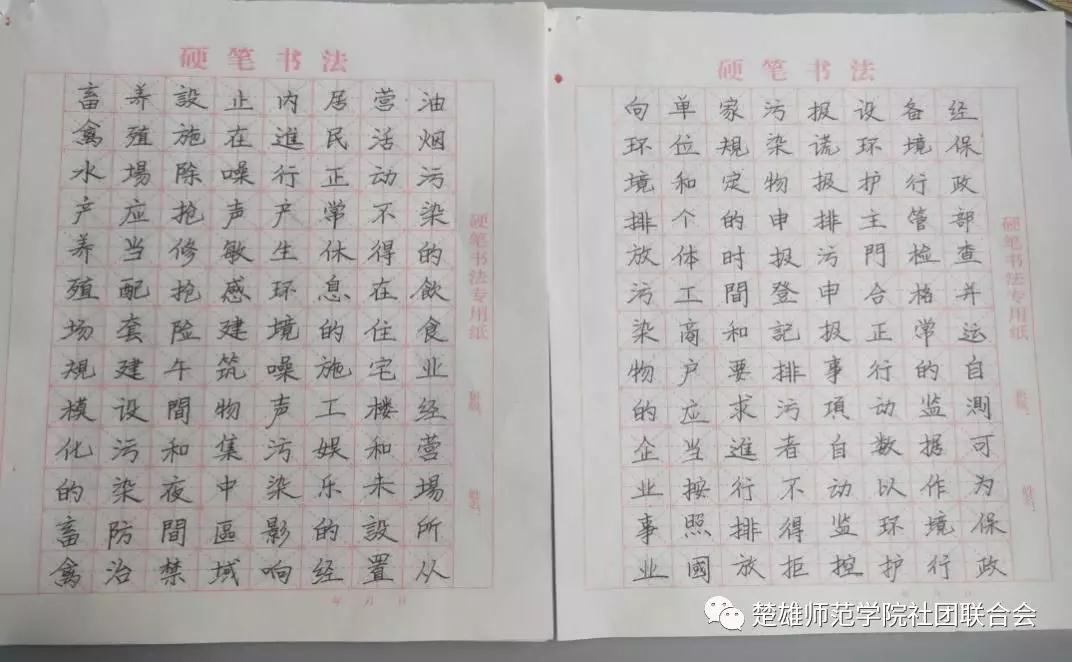 硬笔书法
畜禽水产养殖场規模化的畜禽
养殖場应当配套建设污染防治
設施除抢修抢险午間和夜間禁
止在噪声敏感建筑物集中區域
内進行产生环境噪声污染影响
居民正常休息的施工娱乐的经
营活动不得在住宅楼和未設置
油烟污染的飲食业经营場所从
硬笔书法专用纸
班级:
姓名:
年 月 日
硬笔书法
向环境排放污染物的企业事业
单位和个体工商户应当按照國
家規定的时間和要求進行排放
污染物申报登記排污者不得拒
报谎报排污申报事項自动监控
设环护主門合正行动数以环护
备境行管检格常的监据作境行
经保政部查并运自測可为保政
硬笔书法专用纸
班级:
姓名:
楚雄师范学院社团联合会